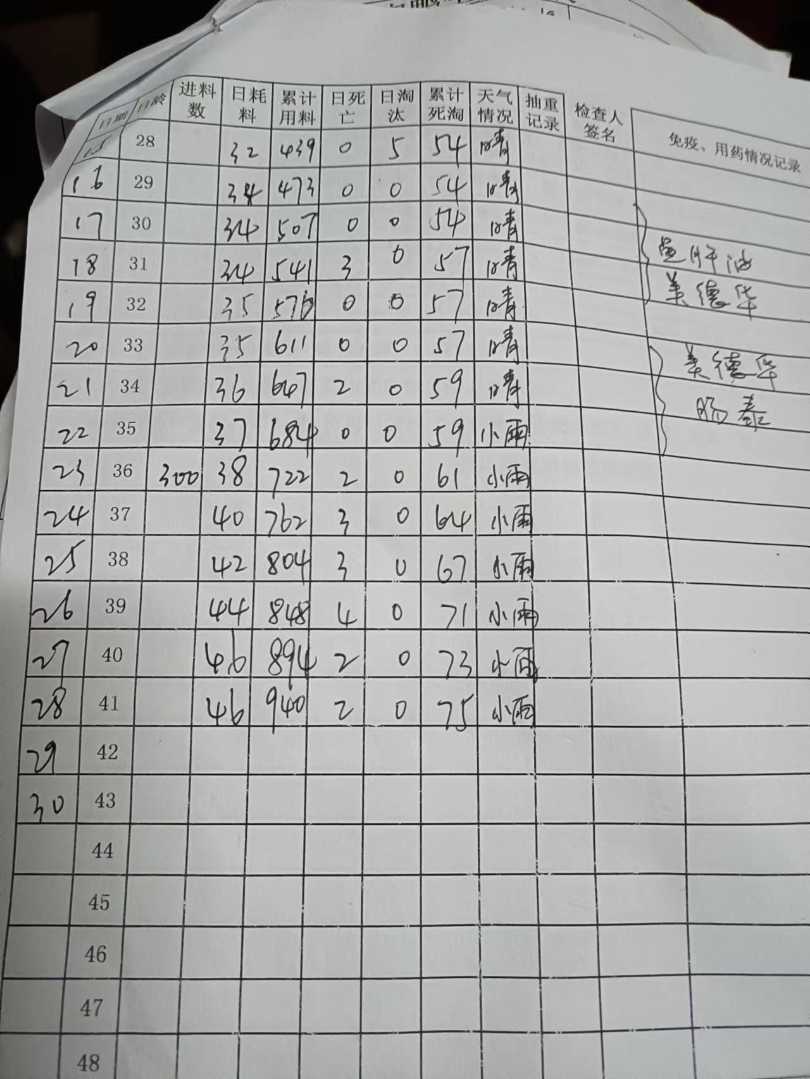 日期 日龄 进料数 日耗料 累计用料 日死亡 日淘汰 累计死淘 天气情况 抽重记录 检查人签名 免疫、用药情况记录
15 28 32 439 0 5 54 晴
16 29 34 473 0 0 54 晴
17 30 34 507 0 0 54 晴
18 31 34 541 3 0 57 晴 鱼肝油
19 32 35 576 0 0 57 晴 美德华
20 33 35 611 0 0 57 晴
21 34 36 647 2 0 59 晴 美德华
22 35 37 684 0 0 59 小雨 肠泰
23 36 300 38 722 2 0 61 小雨
24 37 40 762 3 0 64 小雨
25 38 42 804 3 0 67 小雨
26 39 44 848 4 0 71 小雨
27 40 46 894 2 0 73 小雨
28 41 46 940 2 0 75 小雨
29 42
30 43
44
45
46
47
48